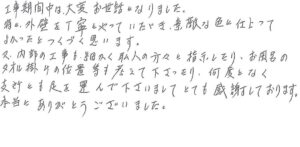 工事期間中は大変お世話になりました。
特に、外壁を丁寧に塗っていただき、素敵な色に仕上って
よかったとつくづく思います。
又、内部の工事も細かく職人の方々と指示したり、お風呂の
タオル掛けの位置等も考えて下さったり、何度となく
支村とも足を運んで下さいましてとても感謝しております。
本当にありがとうございました。